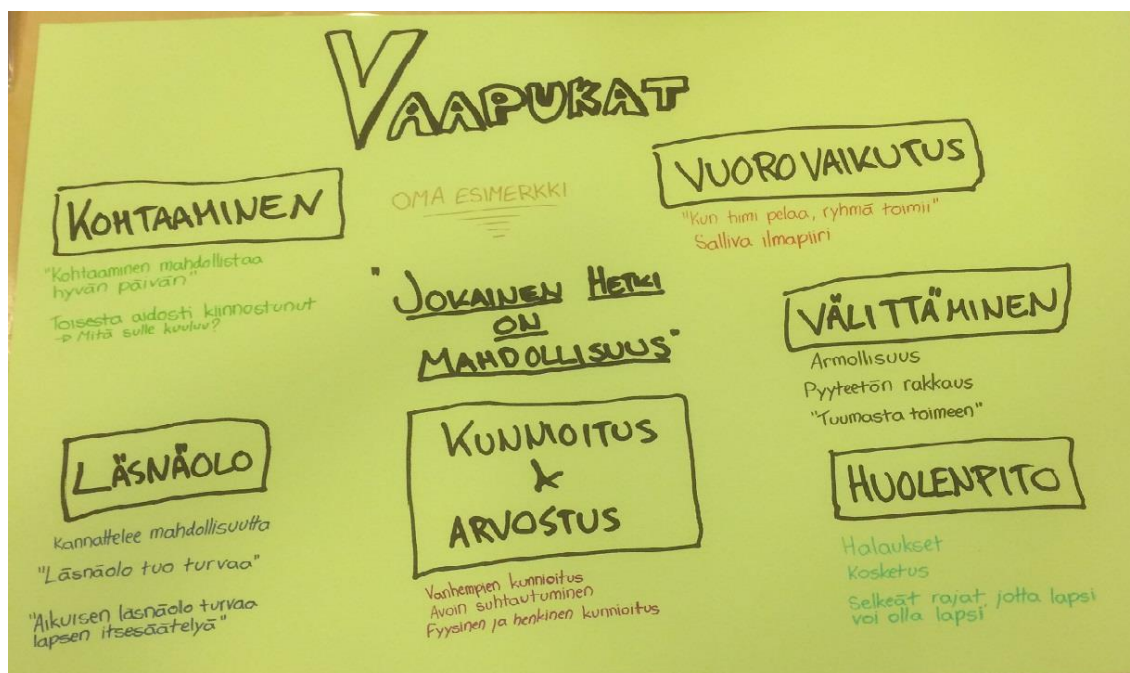 VAAPUKAT
KOHTAAMINEN
"Kohtaaminen mahdollistaa
hyvän päivän"
Toisesta aidosti kiinnostunut
→ Mitä sulle kuuluu?
OMA ESIMERKKI
VUOROVAIKUTUS
"Kun tiimi pelaa, ryhmä toimii"
Salliva ilmapiiri
"JOKAINEN HETKI
ON
MAHDOLLISUUS"
VÄLITTÄMINEN
Armollisuus
Pyyteetön rakkaus
"Tuumasta toimeen"
LÄSNÄOLO
Kannattelee mahdollisuutta
"Läsnäolo tuo turvaa"
"Aikuisen läsnäolo turvaa
lapsen itsesäätelyä"
KUNNIOITUS
&
ARVOSTUS
Vanhempien kunnioitus
Avoin suhtautuminen
Fyysinen ja henkinen kunnioitus
HUOLENPITO
Halaukset
Kosketus
Selkeät rajat, jotta lapsi
voi olla lapsi